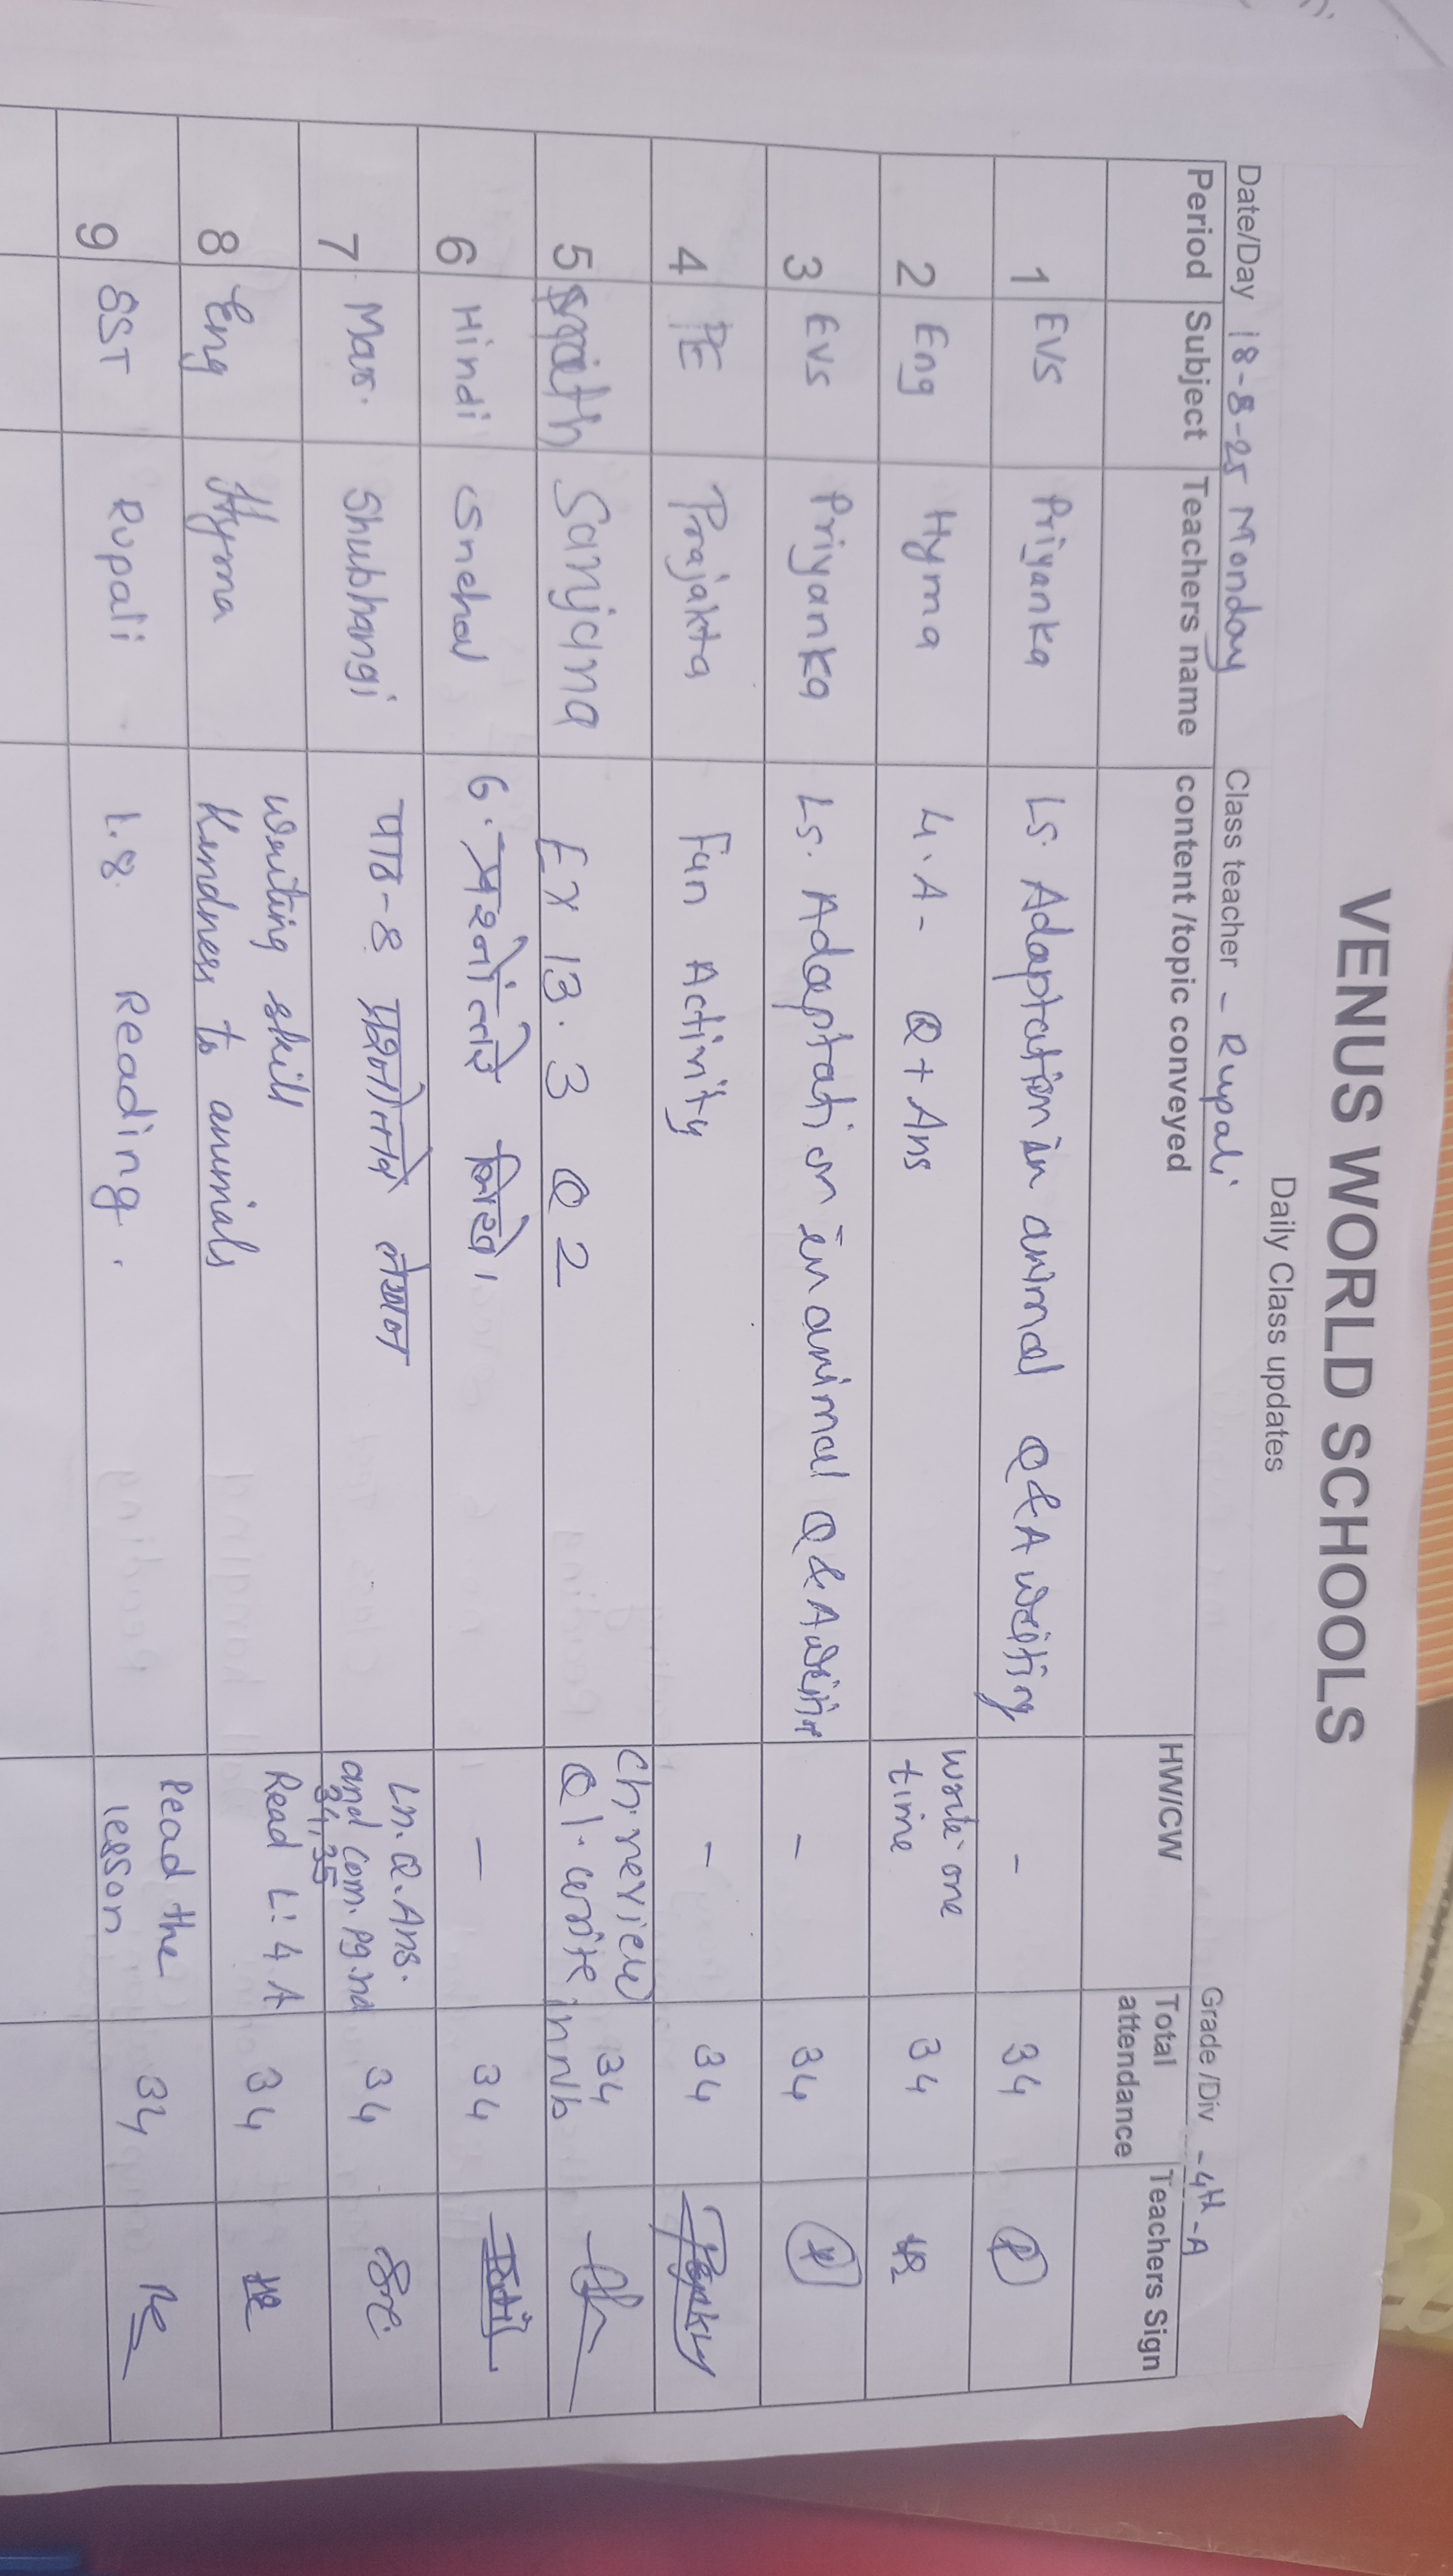 VENUS WORLD SCHOOLS
Daily Class updates
Date/Day 18-8-25 Monday Class teacher - Rupali Grade /Div - 4th - A
Period Subject Teachers name content /topic conveyed HW/CW Total attendance Teachers Sign
1 EVS Priyanka L5. Adaptation in animal Q & A writing - 34
2 Eng Hyma 4.A - Q + Ans write one time 34
3 EVS Priyanka L5. Adaptation in animal Q & A - 34
4 PE Prajakta Fun Activity - 34
5 Sanjana Ex 13.3 Q 2 Ch. review Q 1. write in Nb 34
6 Hindi Snehal 6. प्रश्नोंत्तरे लिखे। - 34
7 Mar. Shubhangi पाठ-8 प्रश्नोत्तरे लेखन Ln. Q. Ans. and Com. pg. no 34,35 34
8 Eng Hyma writing skill Kindness to animals Read L: 4 A 34
9 SST Rupali L.8. Reading. Read the lesson 34